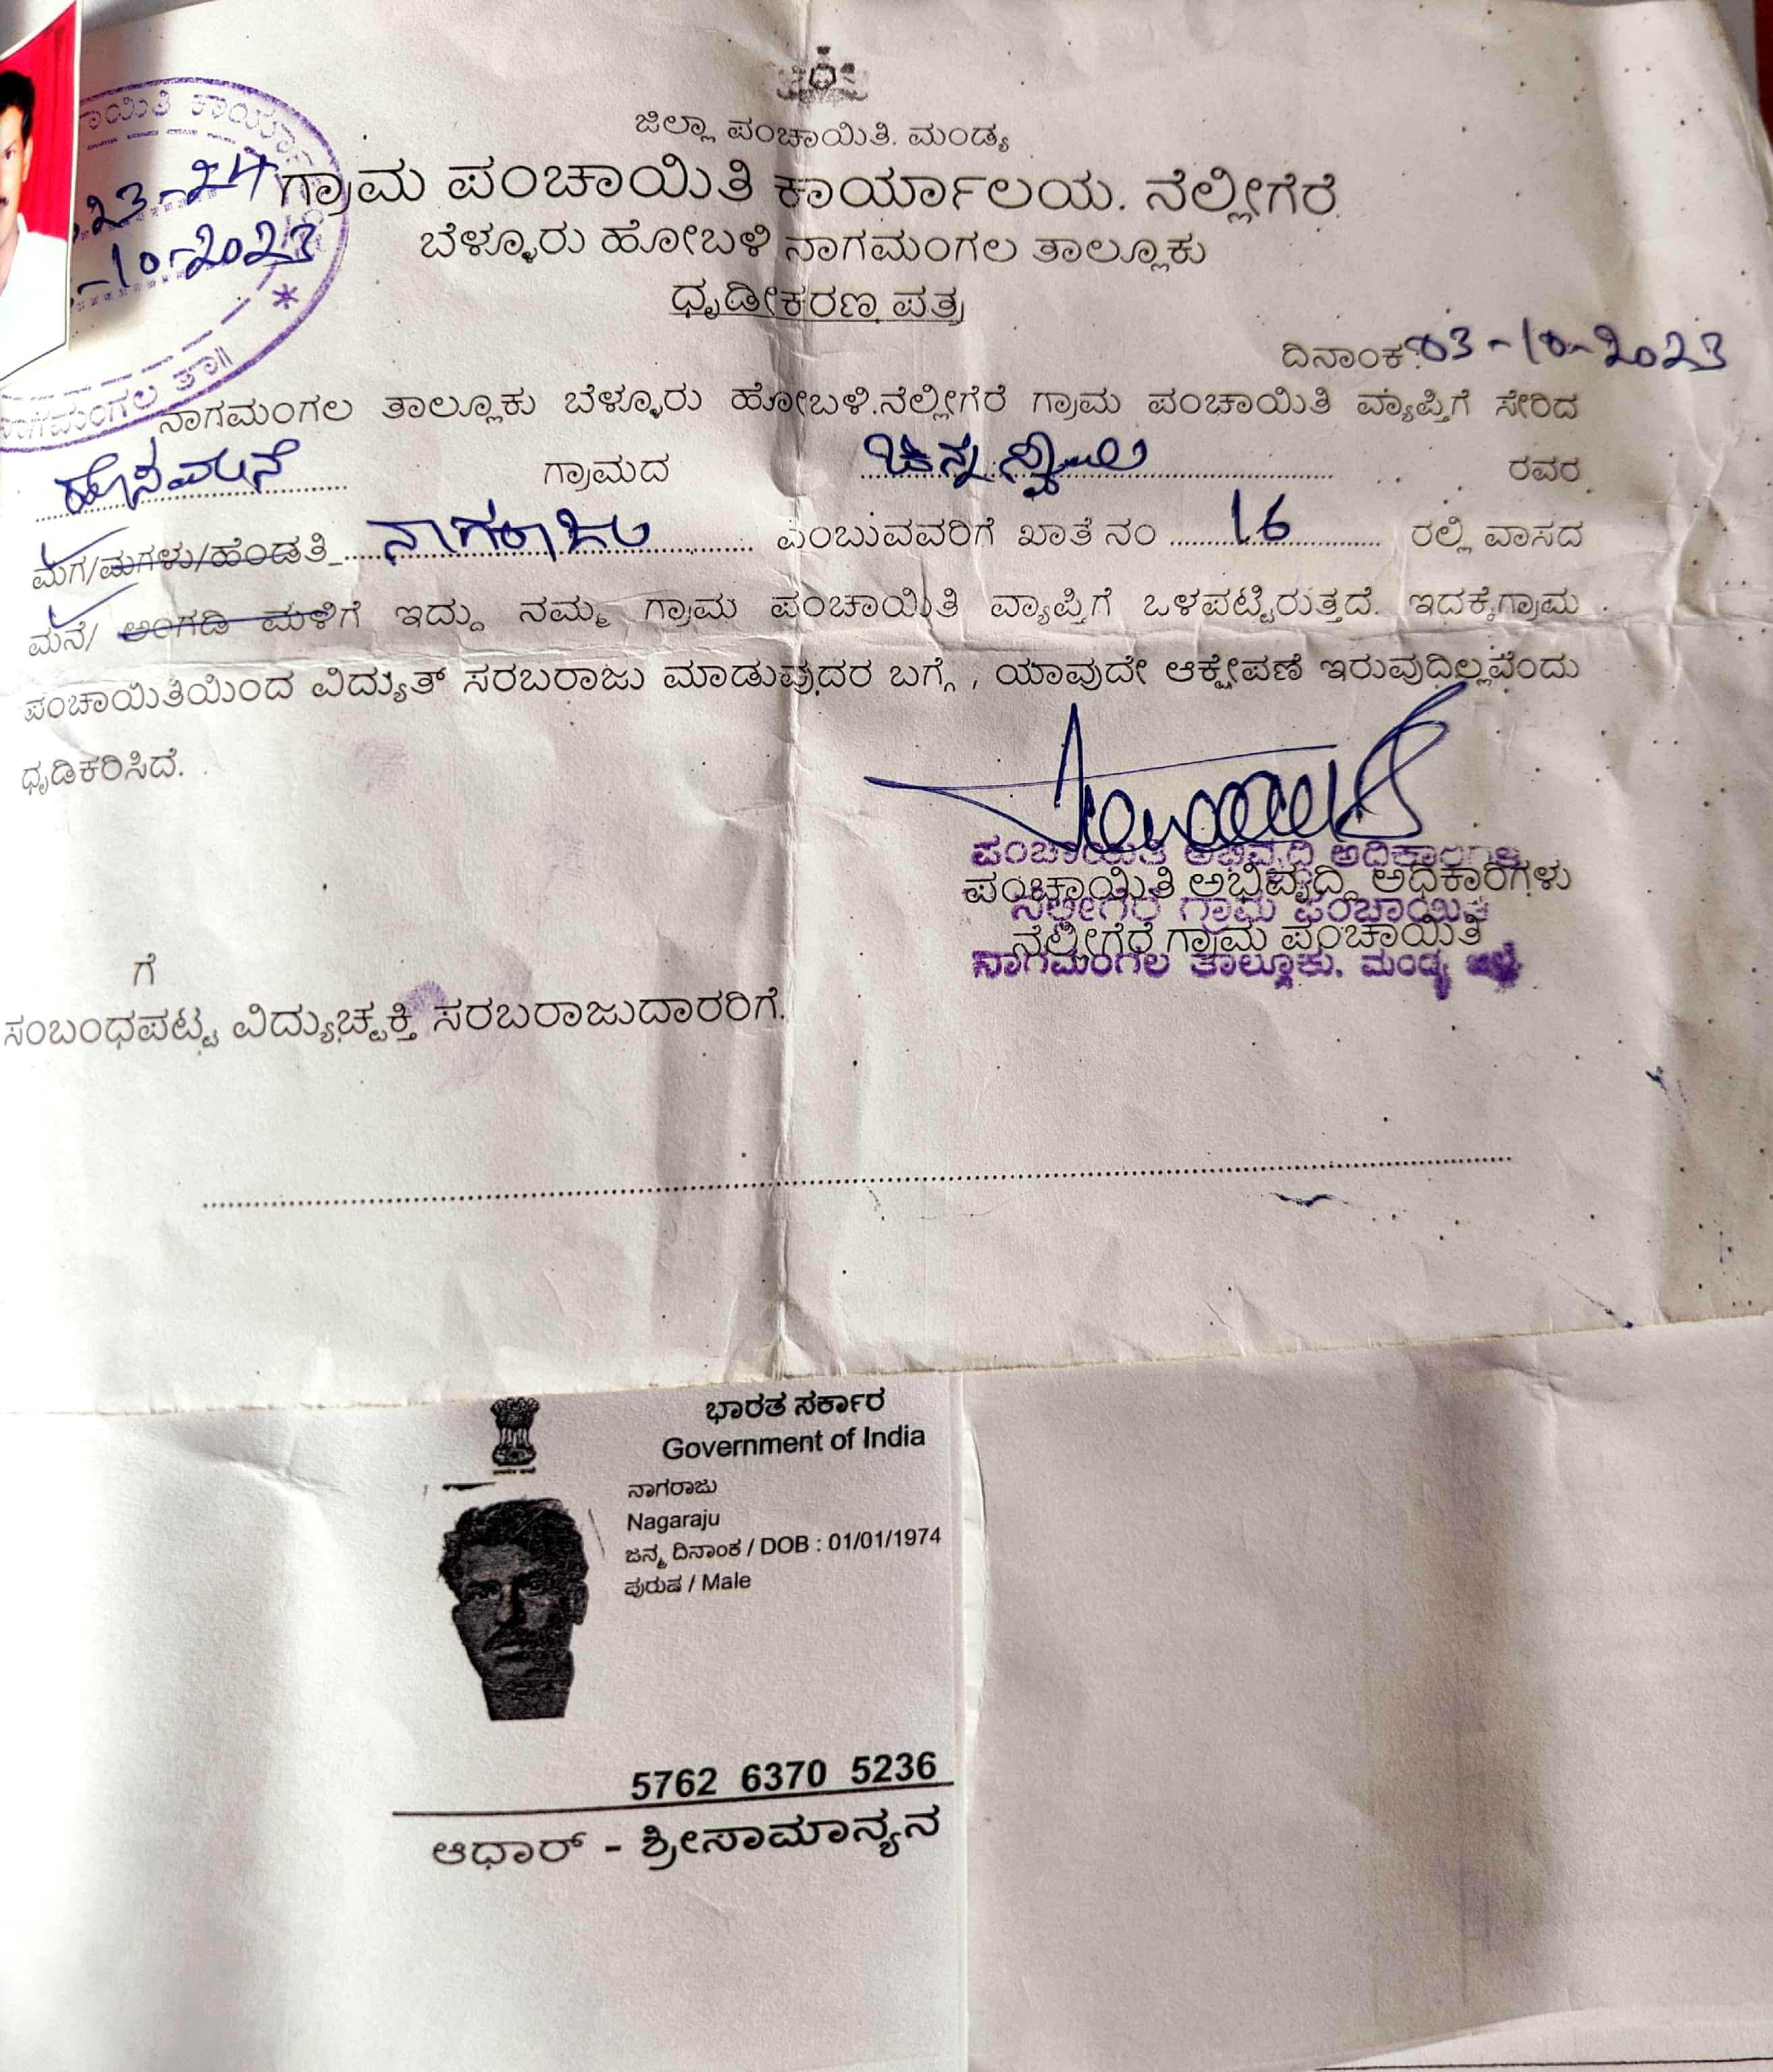 ಜಿಲ್ಲಾ ಪಂಚಾಯಿತಿ. ಮಂಡ್ಯ
ಗ್ರಾಮ ಪಂಚಾಯಿತಿ ಕಾರ್ಯಾಲಯ. ನೆಲ್ಲೀಗೆರೆ
ಬೆಳ್ಳೂರು ಹೋಬಳಿ ನಾಗಮಂಗಲ ತಾಲ್ಲೂಕು
ಧೃಡೀಕರಣ ಪತ್ರ
23-24
-10-2023
ನಾಗಮಂಗಲ ತಾ॥
ದಿನಾಂಕ:03-10-2023
ನಾಗಮಂಗಲ ತಾಲ್ಲೂಕು ಬೆಳ್ಳೂರು ಹೋಬಳಿ.ನೆಲ್ಲೀಗೆರೆ ಗ್ರಾಮ ಪಂಚಾಯಿತಿ ವ್ಯಾಪ್ತಿಗೆ ಸೇರಿದ
ಹೊಸಮನೆ ಗ್ರಾಮದ ರವರ
ಮಗ/ಮಗಳು/ಹೆಂಡತಿ ನಾಗರಾಜು ಎಂಬುವವರಿಗೆ ಖಾತೆ ನಂ 16 ರಲ್ಲಿ ವಾಸದ
ಮನೆ/ ಅಂಗಡಿ ಮಳಿಗೆ ಇದ್ದು ನಮ್ಮ ಗ್ರಾಮ ಪಂಚಾಯಿತಿ ವ್ಯಾಪ್ತಿಗೆ ಒಳಪಟ್ಟಿರುತ್ತದೆ. ಇದಕ್ಕೆಗ್ರಾಮ
ಪಂಚಾಯಿತಿಯಿಂದ ವಿದ್ಯುತ್ ಸರಬರಾಜು ಮಾಡುವುದರ ಬಗ್ಗೆ , ಯಾವುದೇ ಆಕ್ಷೇಪಣೆ ಇರುವುದಿಲ್ಲವೆಂದು
ಧೃಡಿಕರಿಸಿದೆ.
ಪಂಚಾಯಿತಿ ಅಭಿವೃದ್ಧಿ ಅಧಿಕಾರಿಗಳು
ಪಂಚಾಯಿತಿ ಅಭಿವೃದ್ದಿ ಅಧಿಕಾರಿಗಳು
ನೆಲ್ಲೀಗೆರೆ ಗ್ರಾಮ ಪಂಚಾಯಿತಿ
ನೆಲ್ಲೀಗೆರೆ ಗ್ರಾಮ ಪಂಚಾಯಿತಿ
ನಾಗಮಂಗಲ ತಾಲ್ಲೂಕು. ಮಂಡ್ಯ ಜಿಲ್ಲೆ
ಗೆ
ಸಂಬಂಧಪಟ್ಟ ವಿದ್ಯುಚ್ಛಕ್ತಿ ಸರಬರಾಜುದಾರರಿಗೆ.
ಭಾರತ ಸರ್ಕಾರ
Government of India
ನಾಗರಾಜು
Nagaraju
ಜನ್ಮ ದಿನಾಂಕ / DOB : 01/01/1974
ಪುರುಷ / Male
5762 6370 5236
ಆಧಾರ್ - ಶ್ರೀಸಾಮಾನ್ಯನ